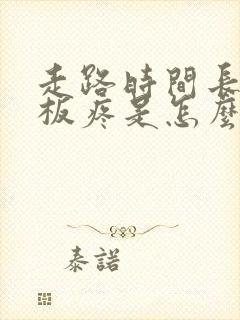 走路時間長
板疼是怎麼
泰諾